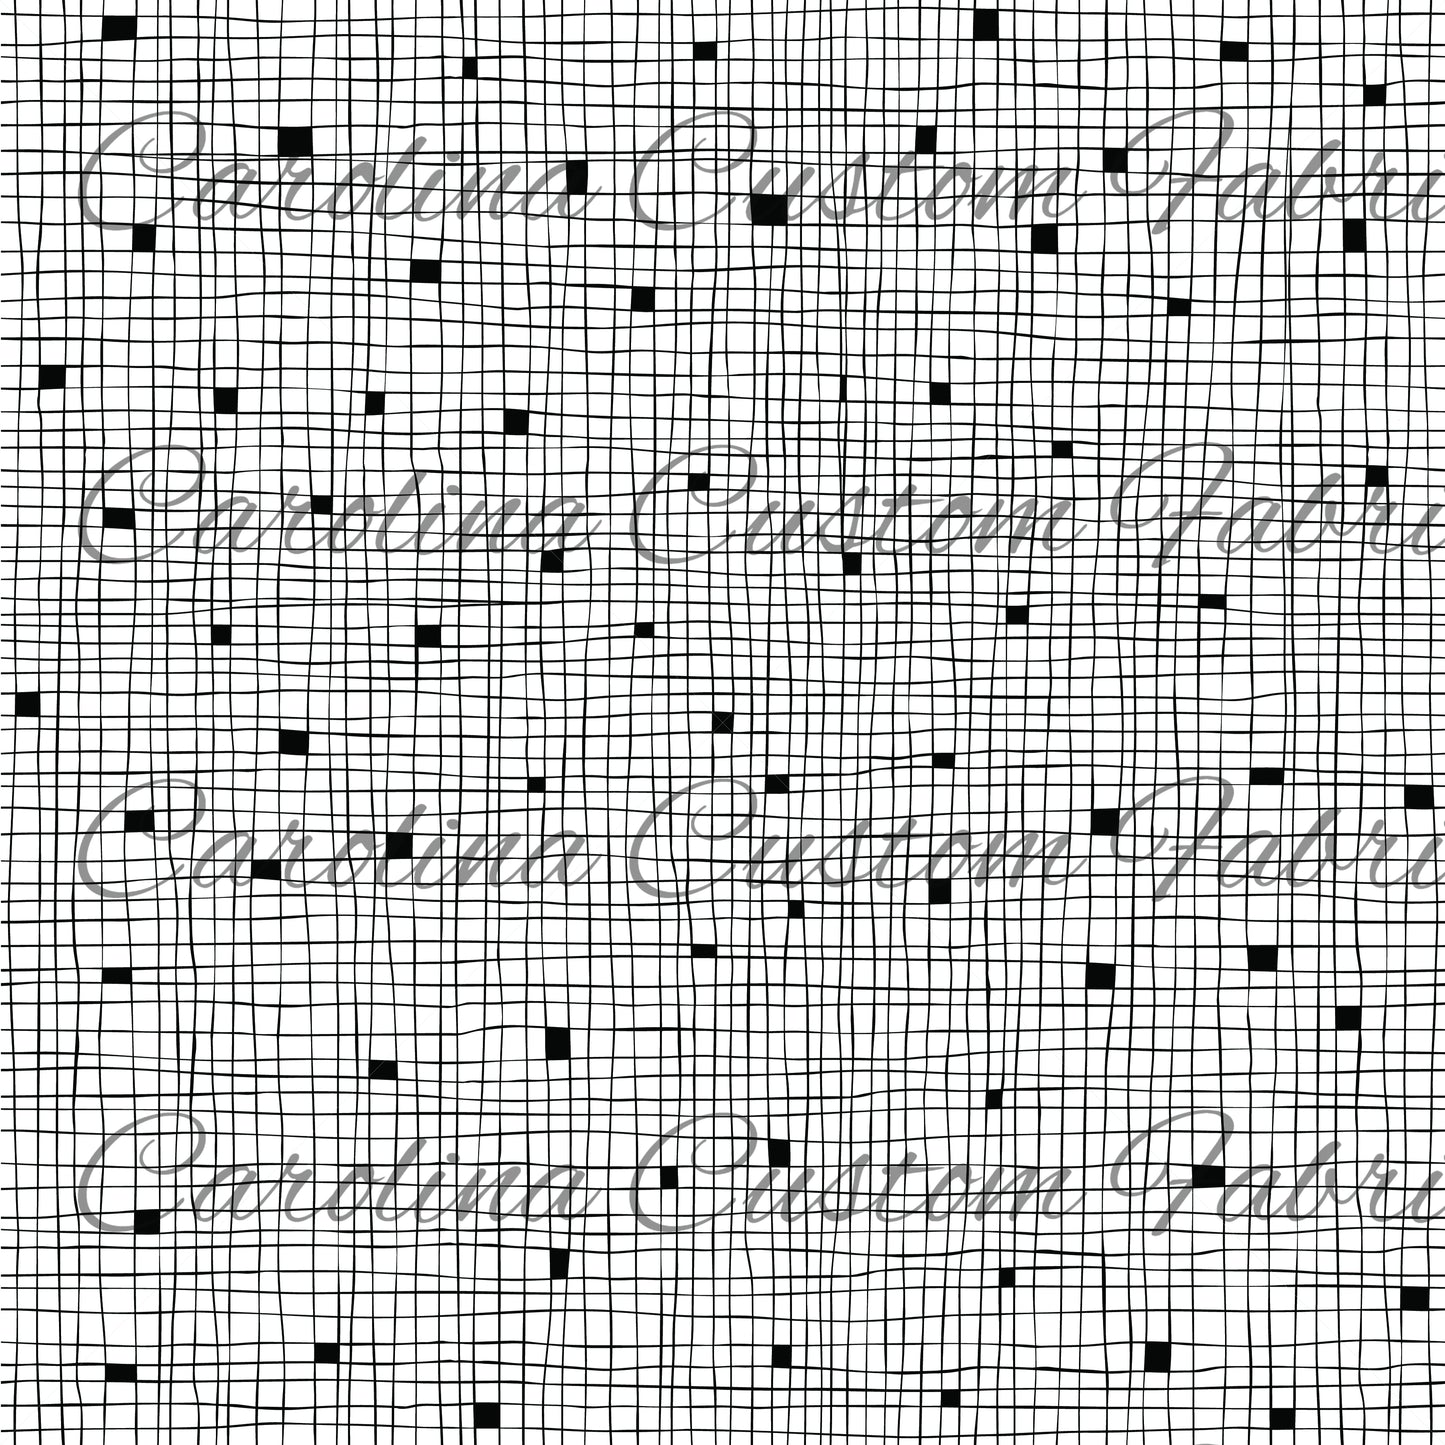 Carolina Custom Fabri
Carolina Custom Fabri
Carolina Custom Fabri
Carolina Custom Fabri